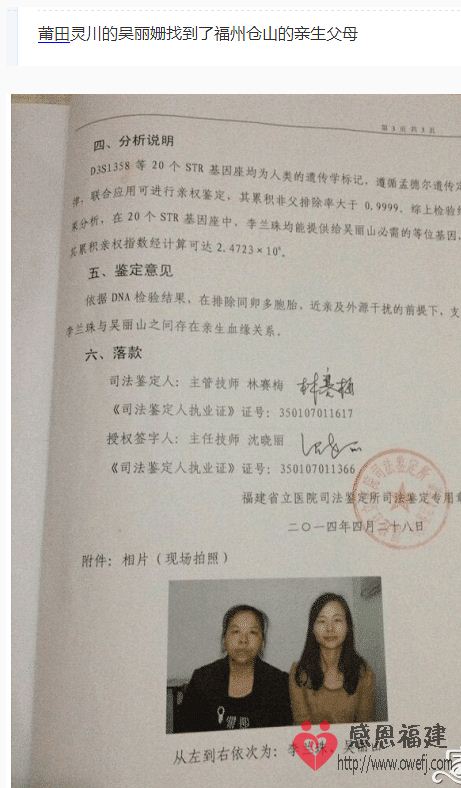 莆田灵川的吴丽姗找到了福州仓山的亲生父母
第 3 页 共 3 页
四、分析说明
D3S1358 等 20 个 STR 基因座均为人类的遗传学标记，遵循孟德尔遗传定
律，联合应用可进行亲权鉴定，其累积非父排除率大于 0.9999。综上检验结
果分析，在 20 个 STR 基因座中，李兰珠均能提供给吴丽山必需的等位基因，
其累积亲权指数经计算可达 2.4723×10⁸。
五、鉴定意见
依据 DNA 检验结果，在排除同卵多胞胎，近亲及外源干扰的前提下，支
李兰珠与吴丽山之间存在亲生血缘关系。
六、落款
司法鉴定人：主管技师 林赛梅 林赛梅
《司法鉴定人执业证》证号：350107011617
授权签字人：主任技师 沈晓丽
《司法鉴定人执业证》证号：350107011366
福建省立医院司法鉴定所司法鉴定专用章
二〇一四年四月二十八日
附件：相片（现场拍照）
从左到右依次为：李兰珠、吴丽
感恩福建
http://www.owefj.com